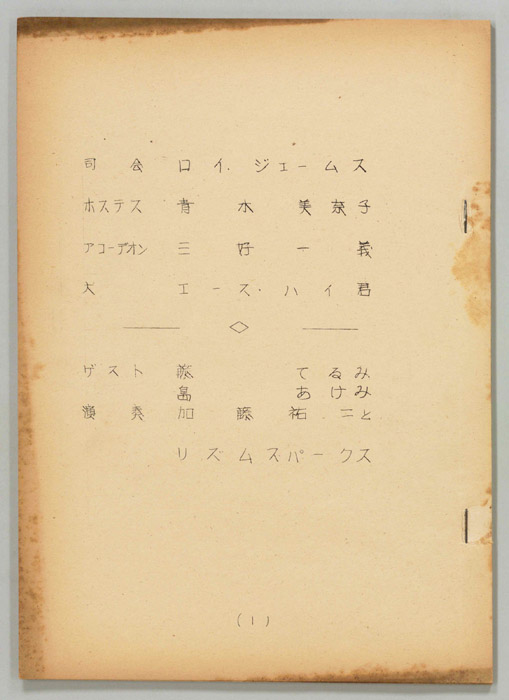 司会 ロイ・ジェームス
ホステス 青木美奈子
アコーデオン 三好一義
犬 エース・ハイ君
ゲスト 藤てるみ
島あけみ
演奏 加藤祐二と
リズムスパークス
(1)